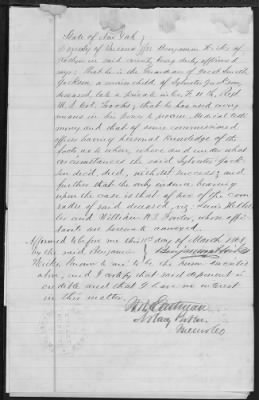 State of New York
County of Queens SS. Benjamin
said county being duly affirmed
says: That he is the Guardian of Jacob Smith
Jackson a minor child of Sylvester Jackson
deceased, late a private in Co. Regt
U. S. Col. Troops; that he has used every
means in his power to procure Medical testi
mony and that of some commissioned
officer having personal knowledge of the
facts as to where, when and under what
circumstances the said Sylvester Jack
son died, without success; and
further that the only evidence bearing
upon the case is that of two of the com
rades of said deceased, viz:
and William H. whose affi
davits are herewith annexed.
Affirmed before me this day of March
by the said Benjamin
Hicks, known to me to be the person
above, and I certify that said deponent is
credible and that I have no interest
in this matter.
Eastman
Notary Public
Queens Co